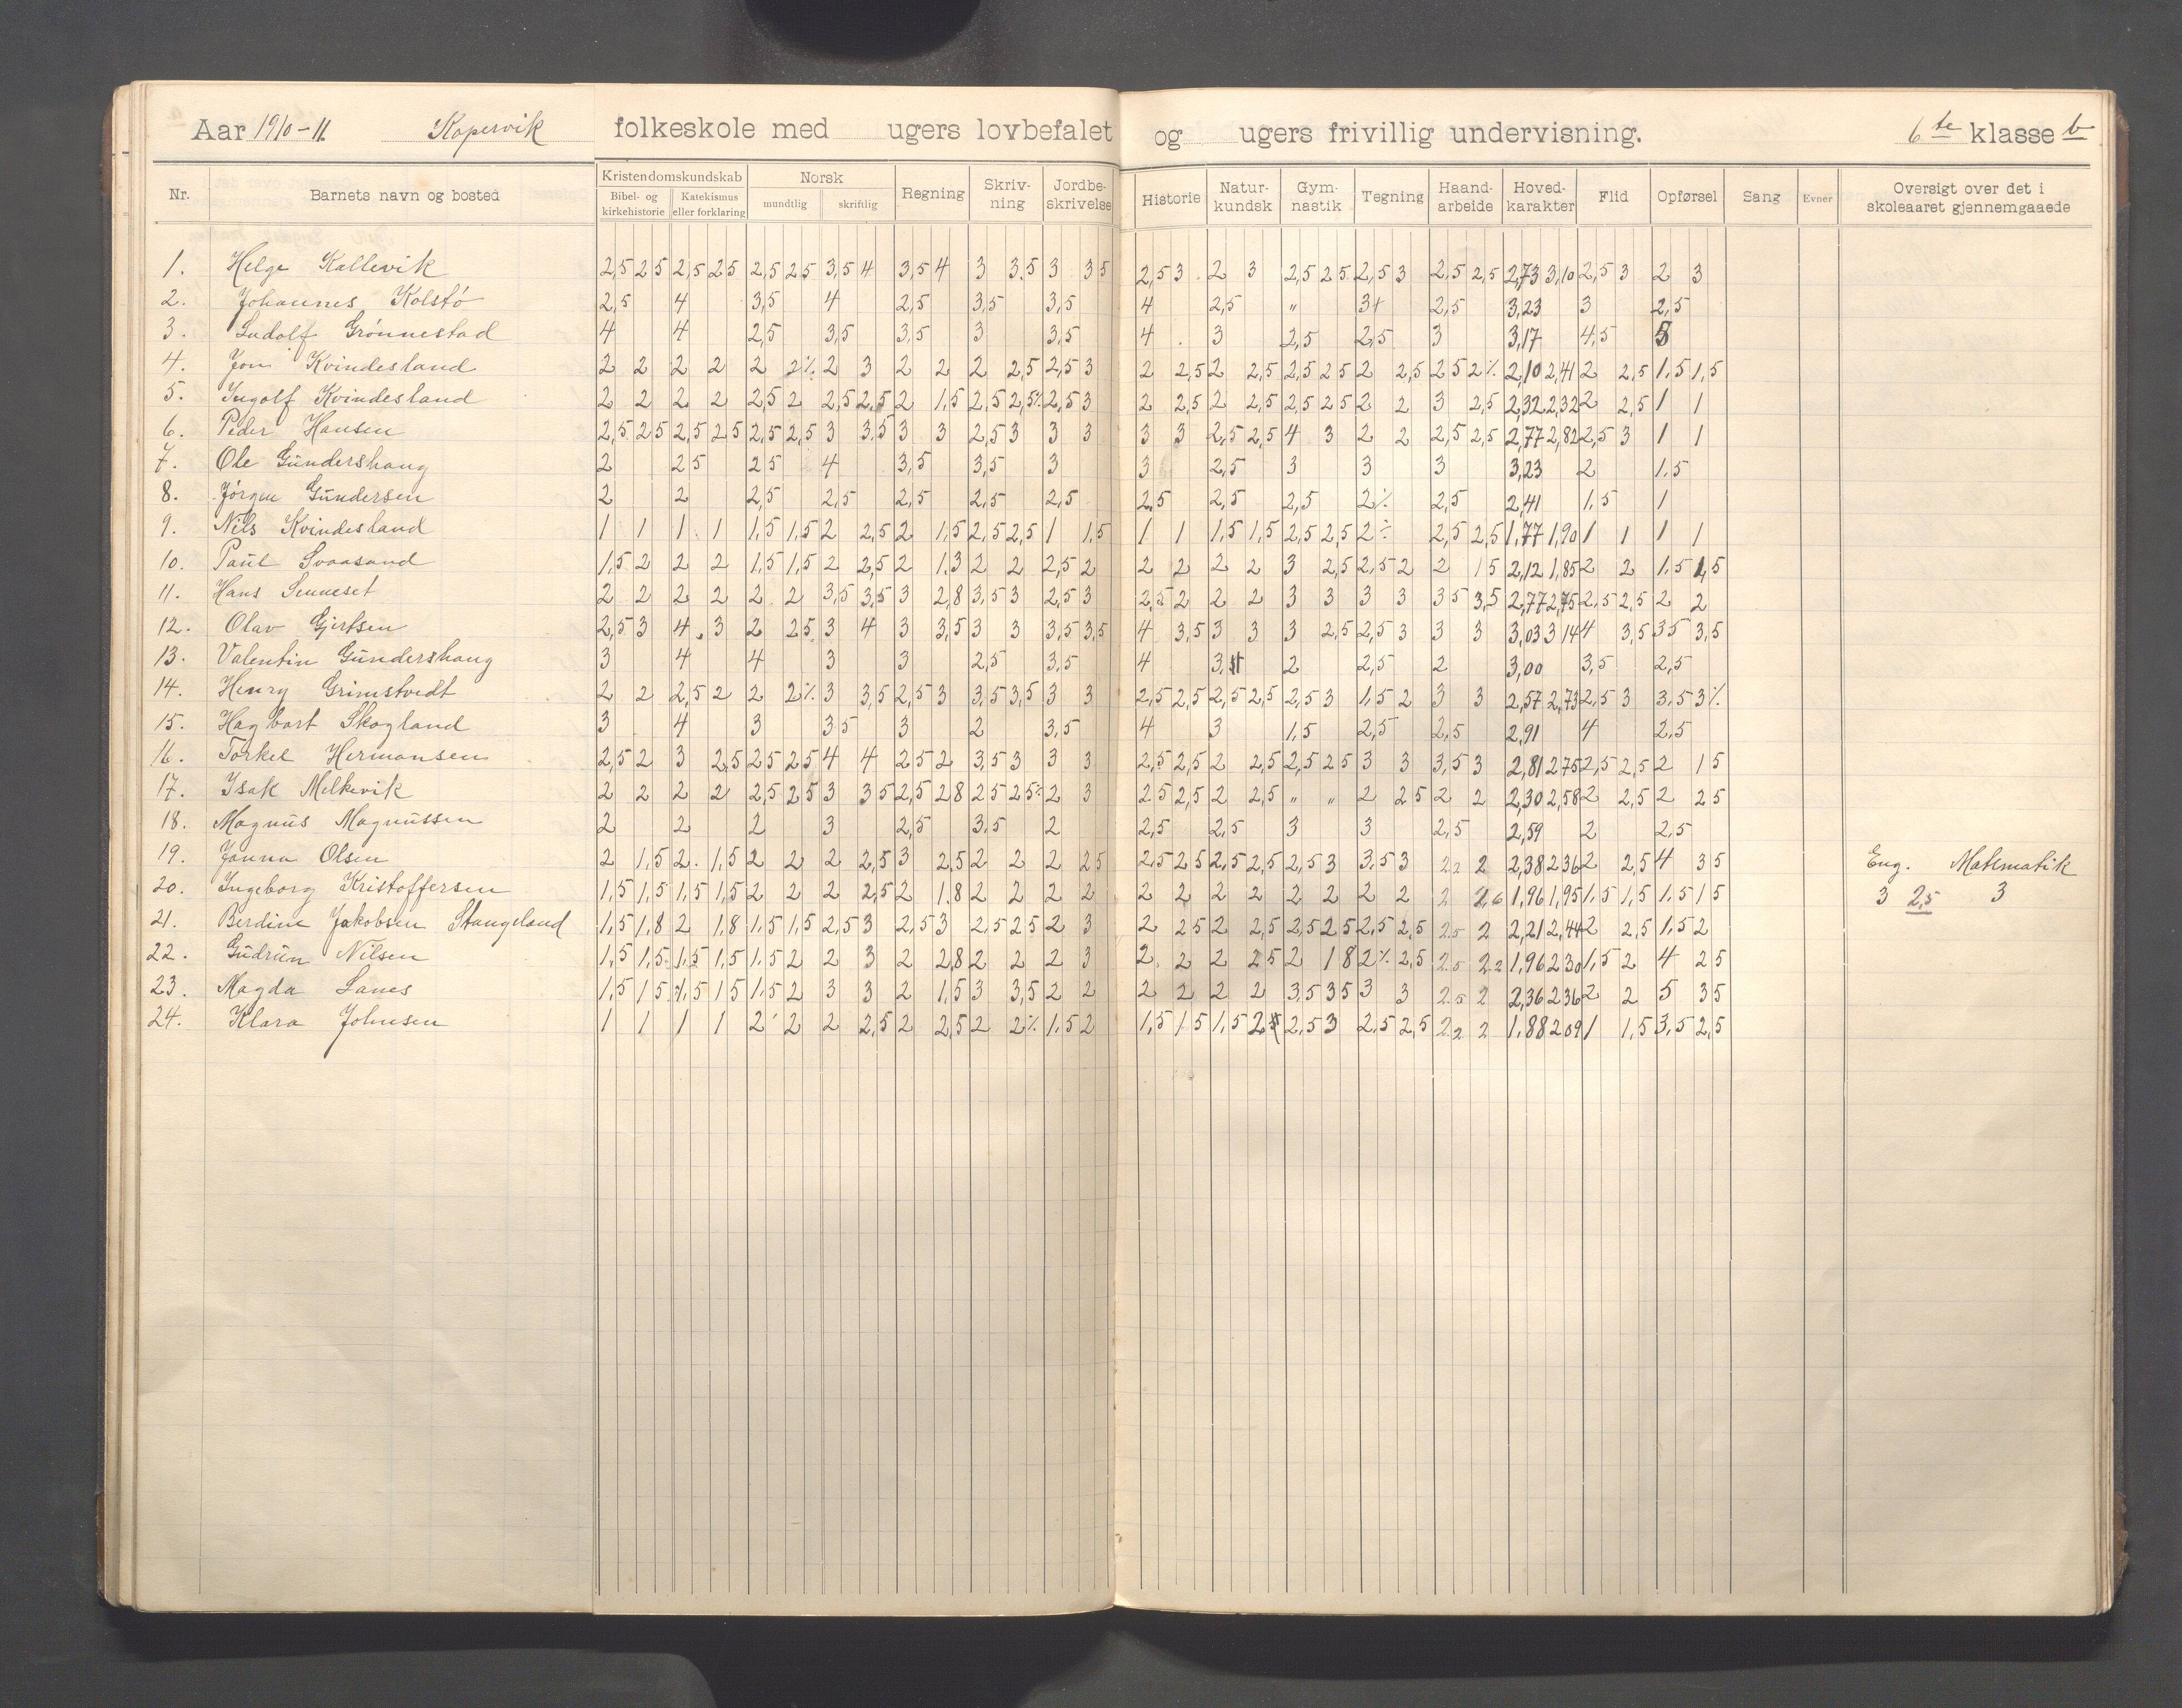 Aar 1910-11. Kopervik folkeskole med ugers lovbefalet og ugers frivillig undervisning. 6te klasse b
Nr. Barnets navn og bosted Kristendomskundskab Norsk Regning Skriv-ning Jordbe-skrivelse Historie Natur-kundsk Gym-nastik Tegning Haand-arbeide Hoved-karakter Flid Opførsel Sang Evner Oversigt over det i skoleaaret gjennemgaaede
Bibel- og kirkehistorie Katekismus eller forklaring mundtlig skriftlig
1. Helge Kallevik 2,5 25 2,5 25 2,5 25 3,5 4 3,5 4 3 3,5 3 35 2,5 3 2 3 2,5 25 2,5 3 2,5 2,5 2,73 3,10 2,5 3 2 3
2. Johannes Kolstø 2,5 4 3,5 4 2,5 3,5 3,5 4 2,5 " 3+ 2,5 3,23 3 2,5
3. Ludolf Grønnestad 4 4 2,5 3,5 3,5 3 3,5 4 3 2,5 2,5 3 3,17 4,5 3
4. Jon Kvindesland 2 2 2 2 2 2% 2 3 2 2 2 2,5 2,5 3 2 2,5 2 2,5 2,5 25 2 2,5 25 2% 2,10 2,41 2 2,5 1,5 1,5
5. Ingolf Kvindesland 2 2 2 2 2,5 2 2,5 2,5 2 1,5 2,5 2,5% 2,5 3 2 2,5 2 2,5 2,5 25 2 2 3 2,5 2,32 2,32 2 2,5 1 1
6. Peder Hansen 2,5 25 2,5 25 2,5 2,5 3 3,5 3 3 2,5 3 3 3 3 3 2,5 2,5 4 3 2 2 2,5 2,5 2,77 2,82 2,5 3 1 1
7. Ole Gundershaug 2 25 25 4 3,5 3,5 3 3 2,5 3 3 3 3,23 2 1.5
8. Jørgen Gundersen 2 2 2,5 2,5 2,5 2,5 2,5 2,5 2,5 2,5 2% 2,5 2,41 1,5 1
9. Nils Kvindesland 1 1 1 1 1,5 1,5 2 2,5 2 1,5 2,5 2,5 1 1,5 1 1 1,5 1,5 2,5 2,5 2% 2,5 2,5 1,77 1,90 1 1 1 1
10. Paul Svaasand 1,5 2 2 2 1,5 1,5 2 2,5 2 1.3 2 2 2,5 2 2 2 2 2 3 2,5 2,5 2 2 15 2,12 1,85 2 2 1.5 1,5
11. Hans Senneset 2 2 2 2 2 2 3,5 3,5 3 2,8 3,5 3 2,5 3 2,5 2 2 2 3 3 3 3 35 3,5 2,77 2,75 2,5 2,5 2 2
12. Olav Gjertsen 2,5 3 4 3 2 25 3 4 3 3,5 3 3 3,5 3,5 4 3,5 3 3 3 2,5 2,5 3 3 3 3,03 3 14 4 3,5 35 3,5
13. Valentin Gundershaug 3 4 4 3 3 2,5 3,5 4 3 2 2,5 2 3,00 3,5 2,5
14. Henry Grimstvedt 2 2 2,5 2 2 2% 3 3,5 2,5 3 3,5 3,5 3 3 2,5 2,5 2,5 2,5 2,5 3 1,5 2 3 3 2,57 2,73 2,5 3 3,5 3%
15. Hagbart Skogland 3 4 3 35 3 2 3,5 4 3 1,5 2,5 2,5 2,91 4 2,5
16. Torkel Hermansen 2,5 2 3 2,5 25 25 4 4 25 2 3,5 3 3 3 2,5 2,5 2 2,5 2,5 25 3 3 3,5 3 2,81 275 2,5 2,5 2 15
17. Isak Melkevik 2 2 2 2 2,5 25 3 35 2,5 28 25 25% 2 3 25 2,5 2 2,5 " " 2 25 2 2 2,30 2,58 2 2,5 2 25
18. Magnus Magnussen 2 2 2 3 2,5 3,5 2 2,5 2,5 3 3 2,5 2,59 2 2,5
19. Janna Olsen 2 1,5 2 1,5 2 2 2 2,5 3 2,5 2 2 2 25 2,5 25 2,5 2,5 2,5 3 3,5 3 22 2 2,38 236 2 2,5 4 35
Eng. Matematik
20. Ingeborg Kristoffersen 1,5 1,5 1,5 1,5 2 2 2 2,5 2 1.8 2 2 2 2 2 2 2 2 2 2 2 2 2 2,6 1,96 1,95 1,5 1,5 1,5 15 3 2,5 3
21. Berdine Jakobsen Stangeland 1,5 1,8 2 1,8 1,5 1,5 2,5 3 2,5 3 2,5 25 2 3 2 25 2 2,5 2,5 25 2,5 2,5 2,5 2 2,21 2,44 2 2,5 1,5 2
22. Gudrun Nilsen 1,5 1,5 1,5 1,5 1.5 2 2 3 2 2,8 2 2 2 3 2 2 2 25 2 18 2% 2,5 2.5 22 1,96 230 1,5 2 4 25
23. Magda Lanes 1,5 15 1,5 15 1.5 2 3 3 2 1,5 3 3,5 2 2 2 2 2 2 3,5 35 3 3 2.5 2 2,36 236 2 2 5 35
24. Klara Johnsen 1 1 1 1 2 2 2 2,5 2 2,5 2 2% 1,5 2 1,5 1,5 1,5 2 2,5 3 2,5 2,5 2.2 2 1,88 209 1 1,5 3,5 2,5